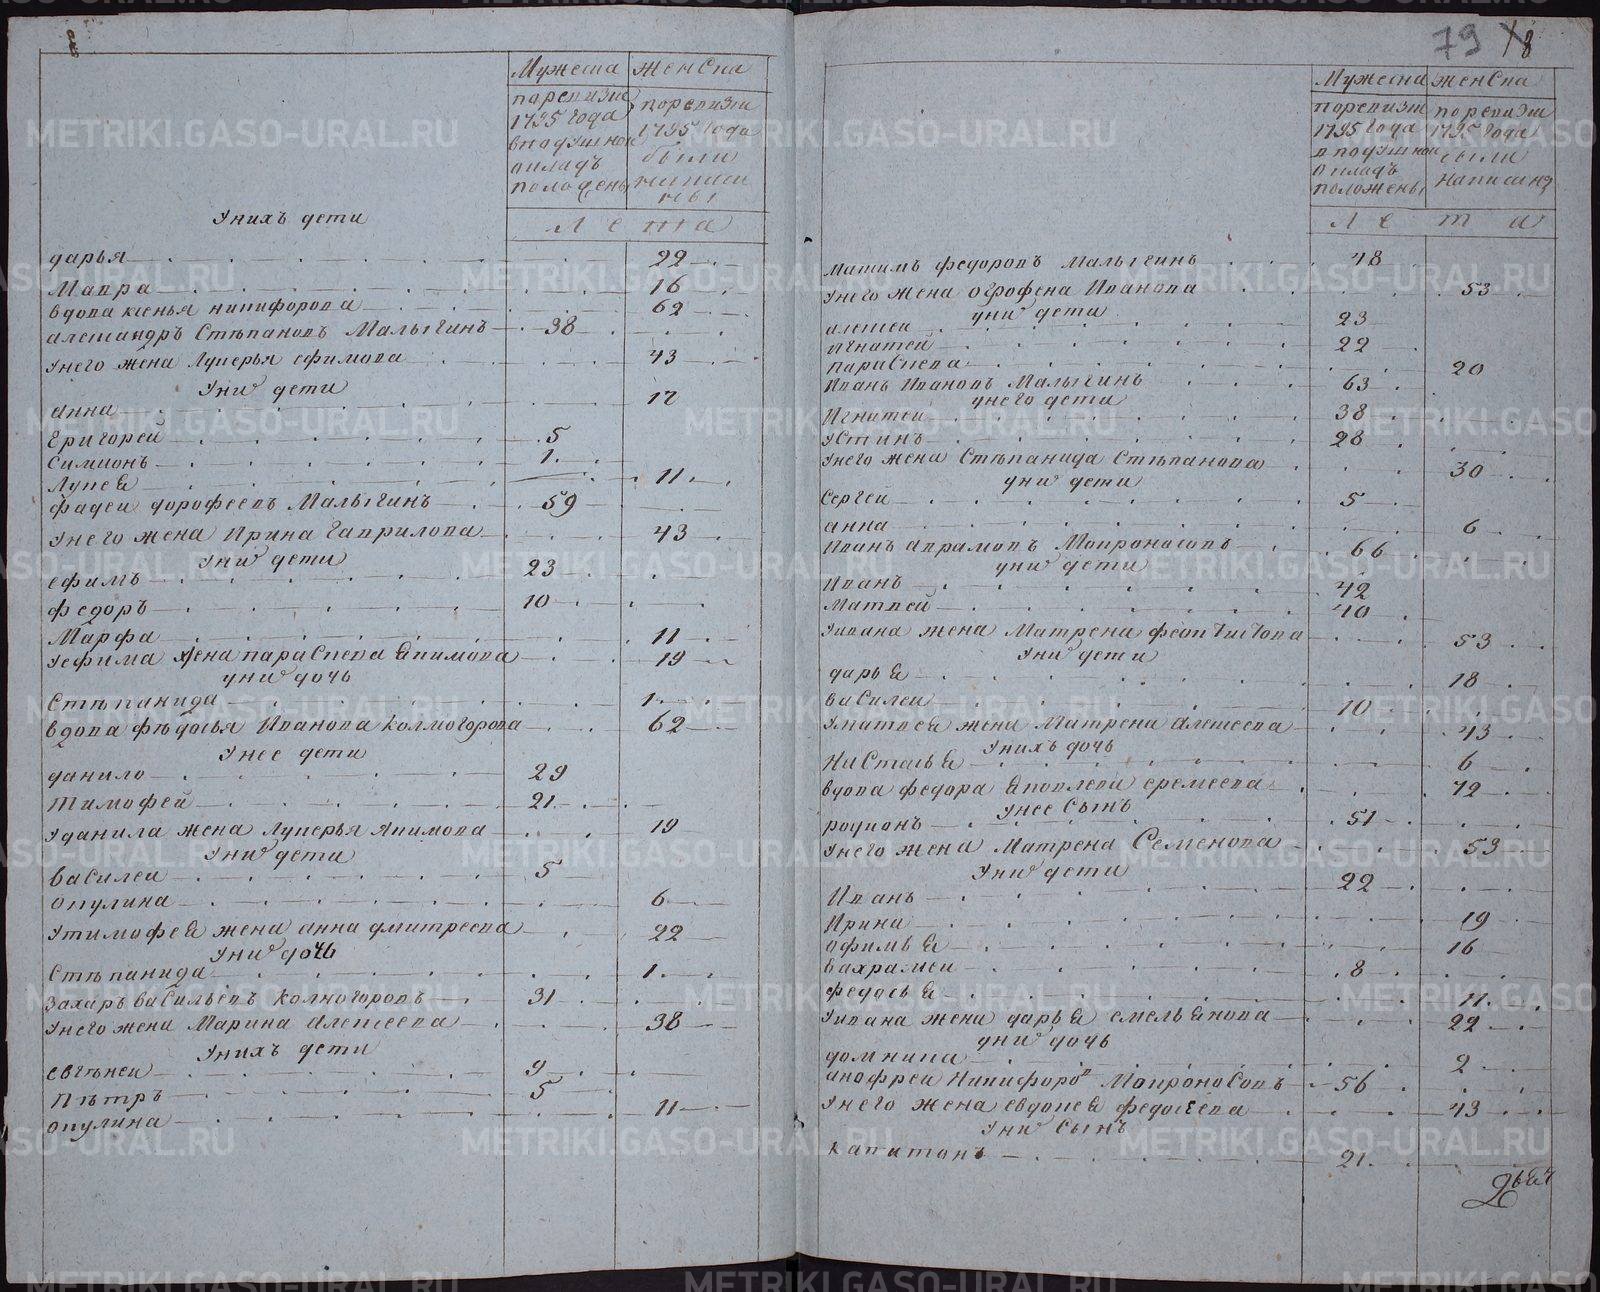 Мужеска женска
поревизии 1795 года вподушной окладъ положены
поревизии 1795 года были написаны
Лета
Унихъ дети
дарья 22
Мавра 16
вдова ксенья никифорова 62
александръ Стѣпановъ Малыгинъ 38
Унего жена Лукерья ефимова 43
Унихъ дети
анна 12
Григорей 5
Симионъ 1
Лукея 11
фадеи дорофеевъ Малыгинъ 59
Унего жена Ирина Гаврилова 43
Унихъ дети
ефимъ 23
федоръ 10
Марфа 11
Уефима жена параскева Екимова 19
унихъ дочь
Стѣпанида 1
вдова фѣдосья Иванова колмогорова 62
Унее дети
данило 29
тимофей 21
Уданила жена Лукерья Якимова 19
Унихъ дети
василеи 5
окулина 6
Утимофея жена анна дмитреева 22
Унихъ дочь
Стѣпанида 1
Захаръ васильевъ колмогоровъ 31
Унего жена Марина Алексеева 38
Унихъ дети
евгѣнеи 9
Пѣтръ 5
окулина 11
79 18
Мужеска женска
поревизии 1795 года вподушной окладъ положены
поревизии 1795 года были написаны
Лета
Максимъ федоровъ Малыгинъ 48
Унего жена огрофена Иванова 53
уних дети
алексеи 23
Игнатей 22
параскева 20
Иванъ Ивановъ Малыгинъ 63
унего дети
Игнатеи 38
Устинъ 28
Унего жена Стѣпанида Стѣпанова 30
уних дети
Сергеи 5
анна 6
Иванъ аврамовъ Мокроносовъ 66
уних дети
Иванъ 42
Матвей 40
Уивана жена Матрена феоктистова 53
Уних дети
дарья 18
василеи 10
Уматвея жена Матрена алексеева 43
Унихъ дочь
Настасья 6
вдова федора Яковлева еремеева 72
Унее Сынъ
родионъ 51
Унего жена Матрена Семенова 53
Уних дети
Иванъ 22
Ирина 19
офимья 16
вахрамеи 8
федосья 11
Уивана жена дарья емельянова 22
уних дочь
домника 2
анофреи Никифоровъ Мокроносовъ 56
Унего жена евдокея федосеева 43
Уних Сынъ
капитонъ 21
Дьяч
METRIKI.GASO-URAL.RU